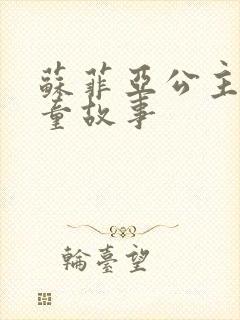 蘇菲亞公主
童故事
輪臺望